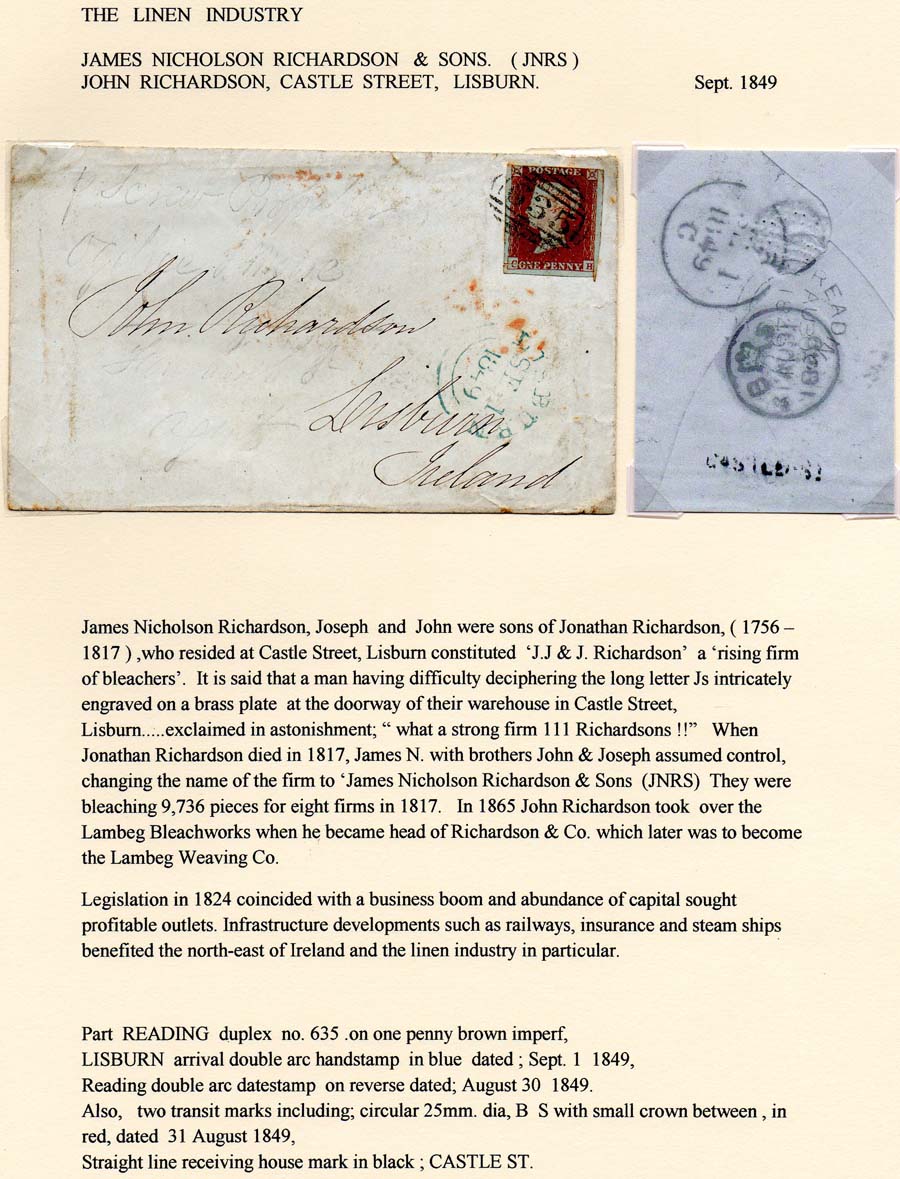 THE LINEN INDUSTRY
JAMES NICHOLSON RICHARDSON & SONS. ( JNRS )
JOHN RICHARDSON, CASTLE STREET, LISBURN. Sept. 1849
POSTAGE
635
ONE PENNY
John Richardson
Lisburn
Ireland
SE 1
1849
1
1849
C
READ
CASTLE-ST
James Nicholson Richardson, Joseph and John were sons of Jonathan Richardson, ( 1756 –
1817 ) ,who resided at Castle Street, Lisburn constituted ‘J.J & J. Richardson’ a ‘rising firm
of bleachers’. It is said that a man having difficulty deciphering the long letter Js intricately
engraved on a brass plate at the doorway of their warehouse in Castle Street,
Lisburn.....exclaimed in astonishment; “ what a strong firm 111 Richardsons !!” When
Jonathan Richardson died in 1817, James N. with brothers John & Joseph assumed control,
changing the name of the firm to ‘James Nicholson Richardson & Sons (JNRS) They were
bleaching 9,736 pieces for eight firms in 1817. In 1865 John Richardson took over the
Lambeg Bleachworks when he became head of Richardson & Co. which later was to become
the Lambeg Weaving Co.
Legislation in 1824 coincided with a business boom and abundance of capital sought
profitable outlets. Infrastructure developments such as railways, insurance and steam ships
benefited the north-east of Ireland and the linen industry in particular.
Part READING duplex no. 635 .on one penny brown imperf,
LISBURN arrival double arc handstamp in blue dated ; Sept. 1 1849,
Reading double arc datestamp on reverse dated; August 30 1849.
Also, two transit marks including; circular 25mm. dia, B S with small crown between , in
red, dated 31 August 1849,
Straight line receiving house mark in black ; CASTLE ST.